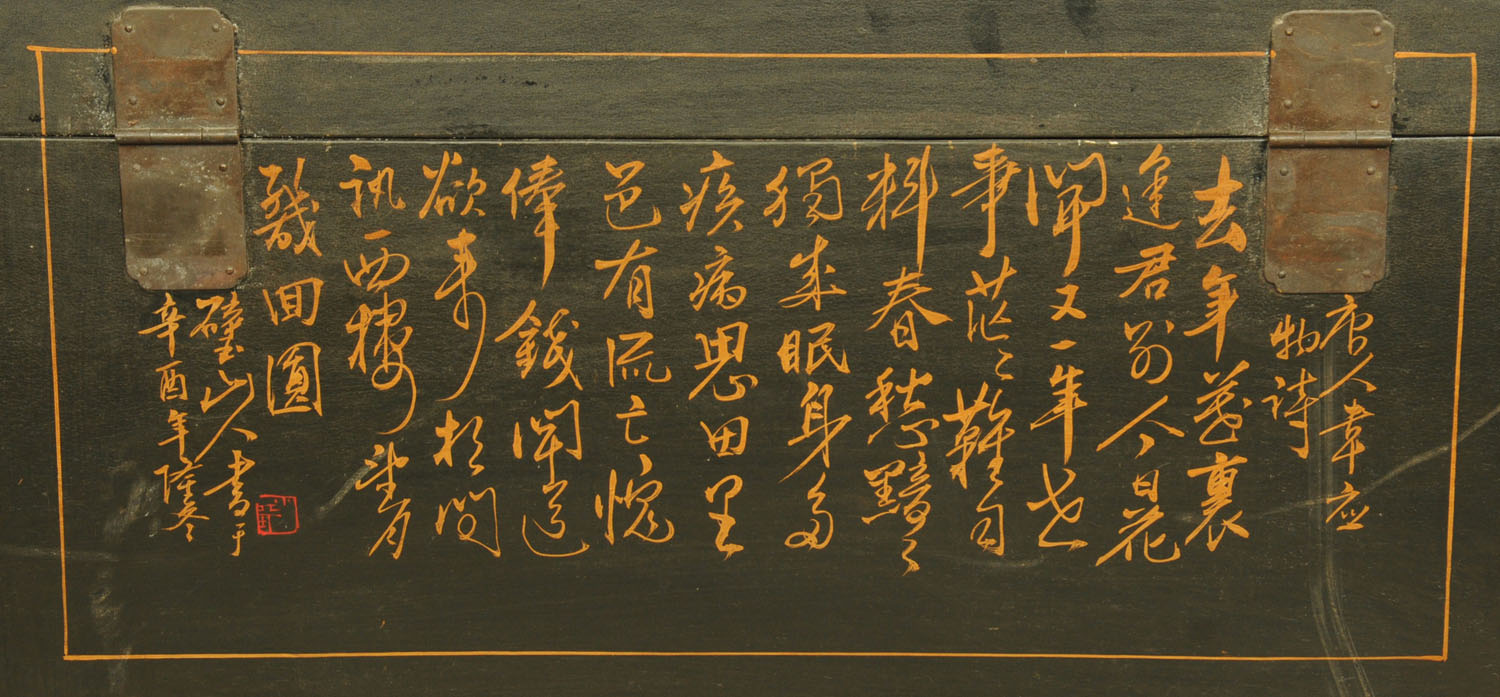 唐人韋应
物詩
去年花裏
逢君别今日花
開又一年世
事茫〻難自
料春愁黯〻
獨成眠身多
疾病思田里
邑有流亡愧
俸錢聞道
欲来相問
訊西樓望月
幾囬圓
璧山人書于
辛酉年隆冬